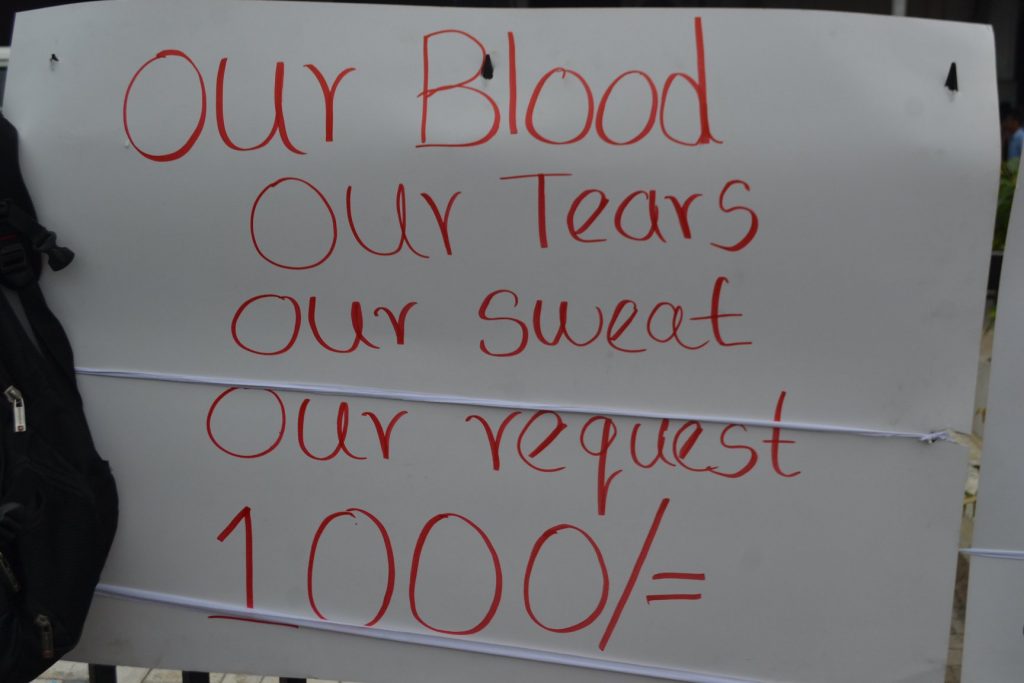 Our Blood
Our Tears
Our sweat
Our request
1000/=